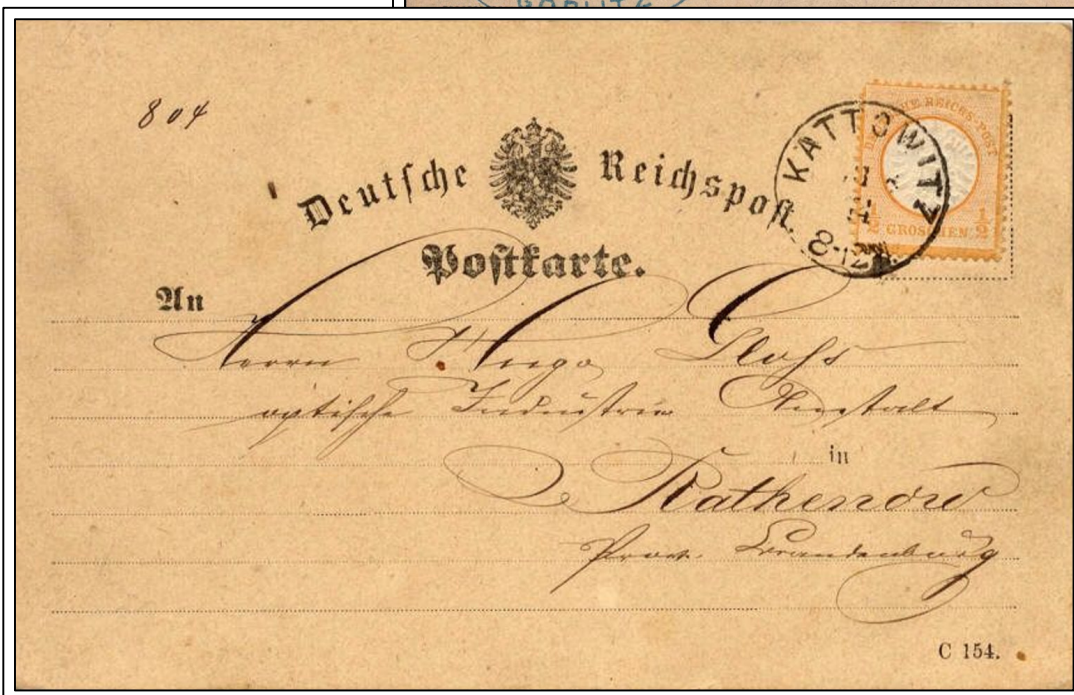 GÖRLITZ
804
Deutsche Reichspost.
Postkarte.
KATTOWITZ
8-12
DEUTSCHE REICHS-POST
½ GROSCHEN ½
An
Herrn Hugo
optische Industrie Anstalt
in
Rathenow
Prov. Brandenburg
C 154.